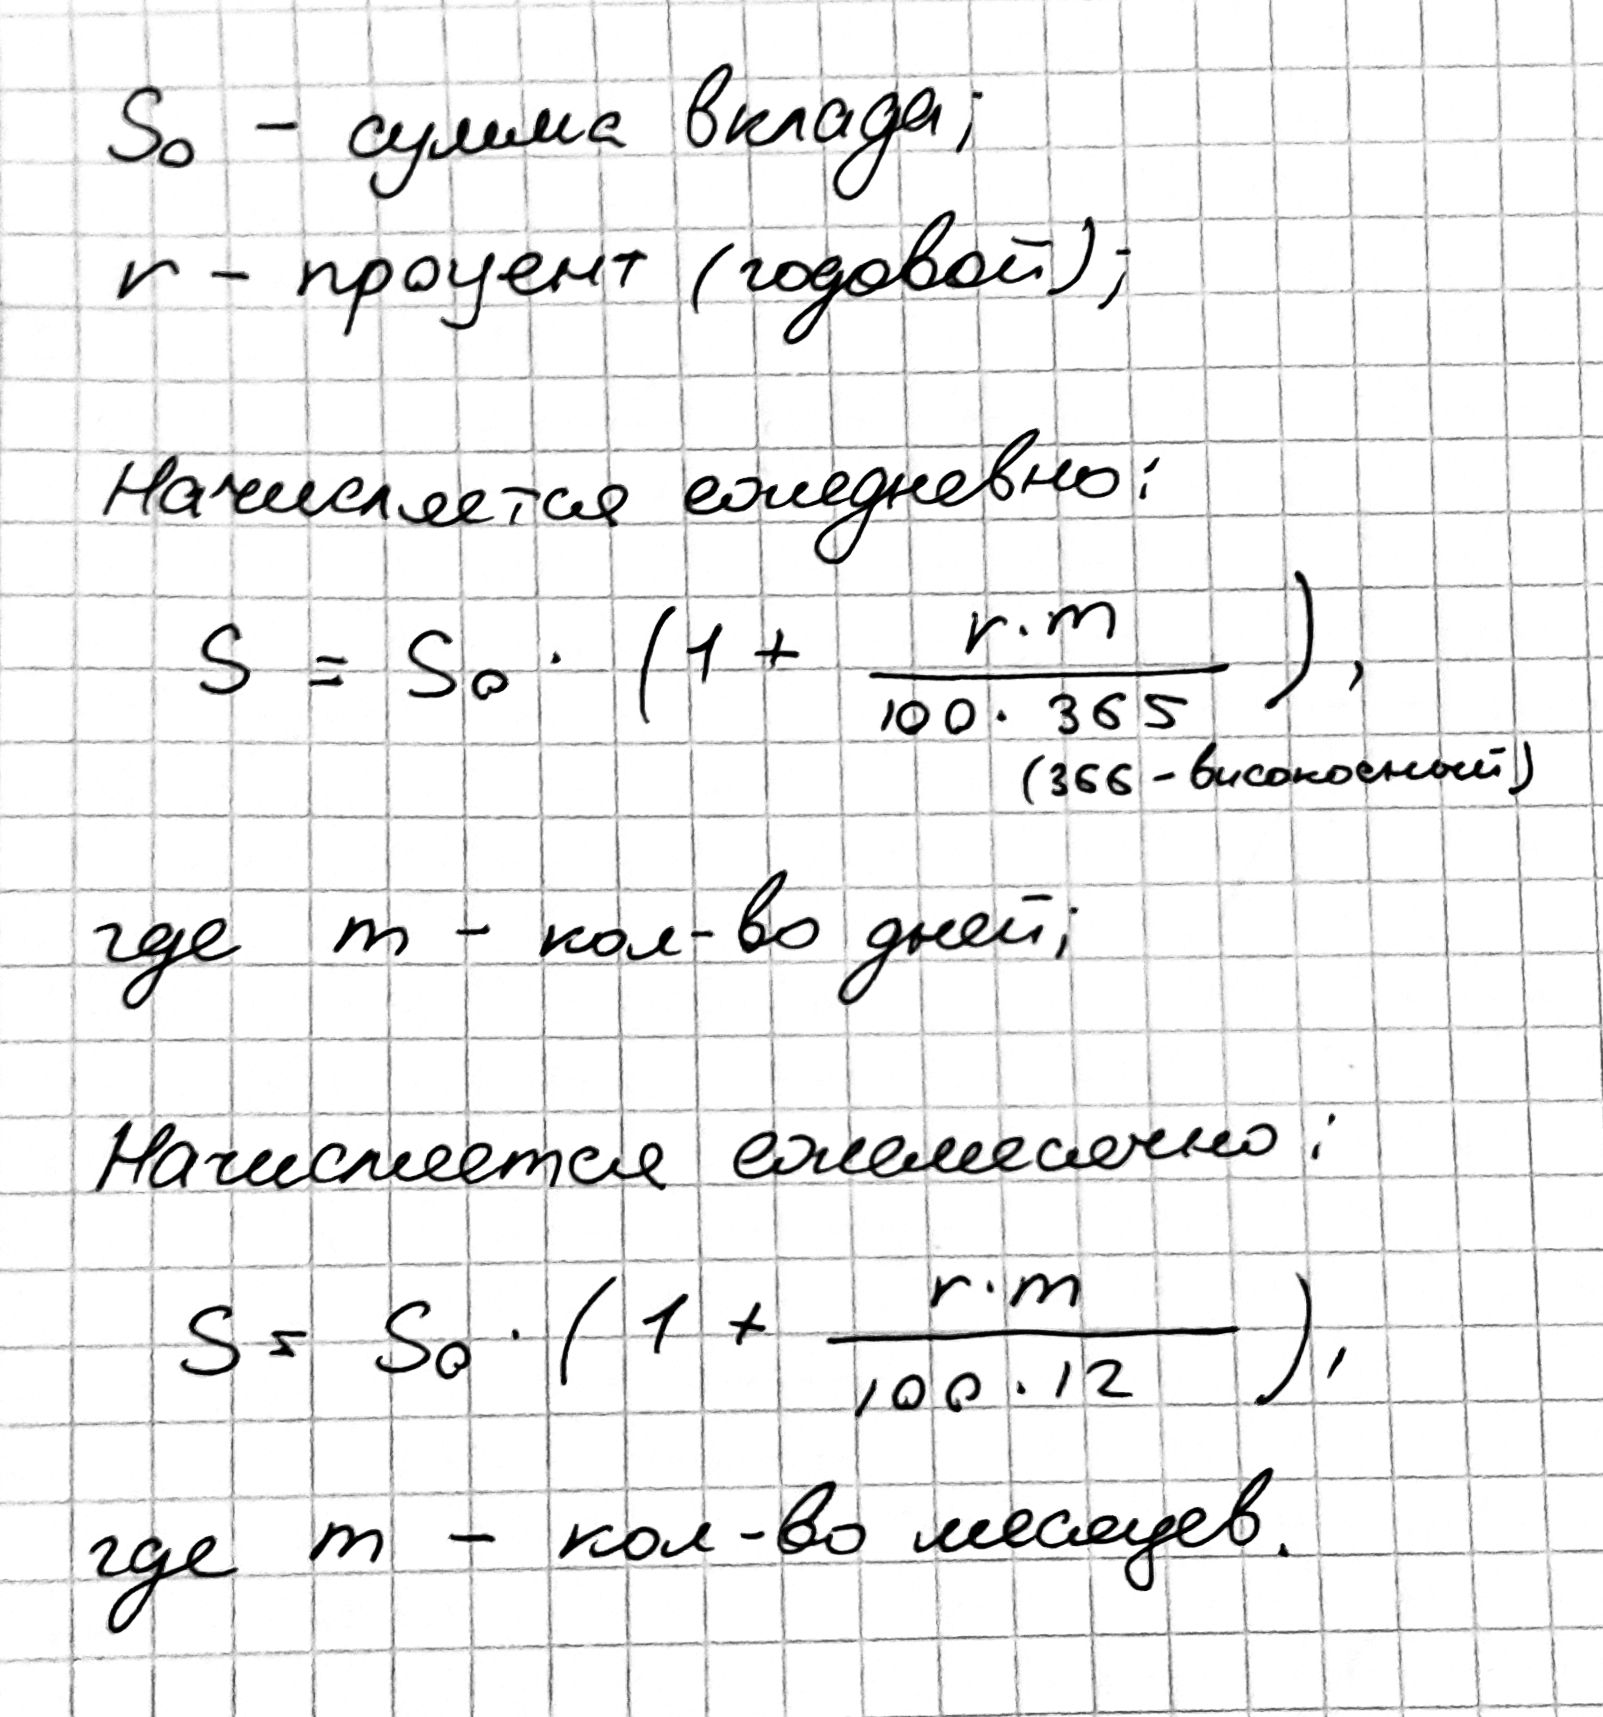 S₀ – сумма вклада;
r – процент (годовой);
Начисляется ежедневно:
S = S₀ · (1 + r·m / 100 · 365),
(366 – високосный)
где m – кол-во дней;
Начисляется ежемесячно:
S = S₀ · (1 + r·m / 100 · 12),
где m – кол-во месяцев.